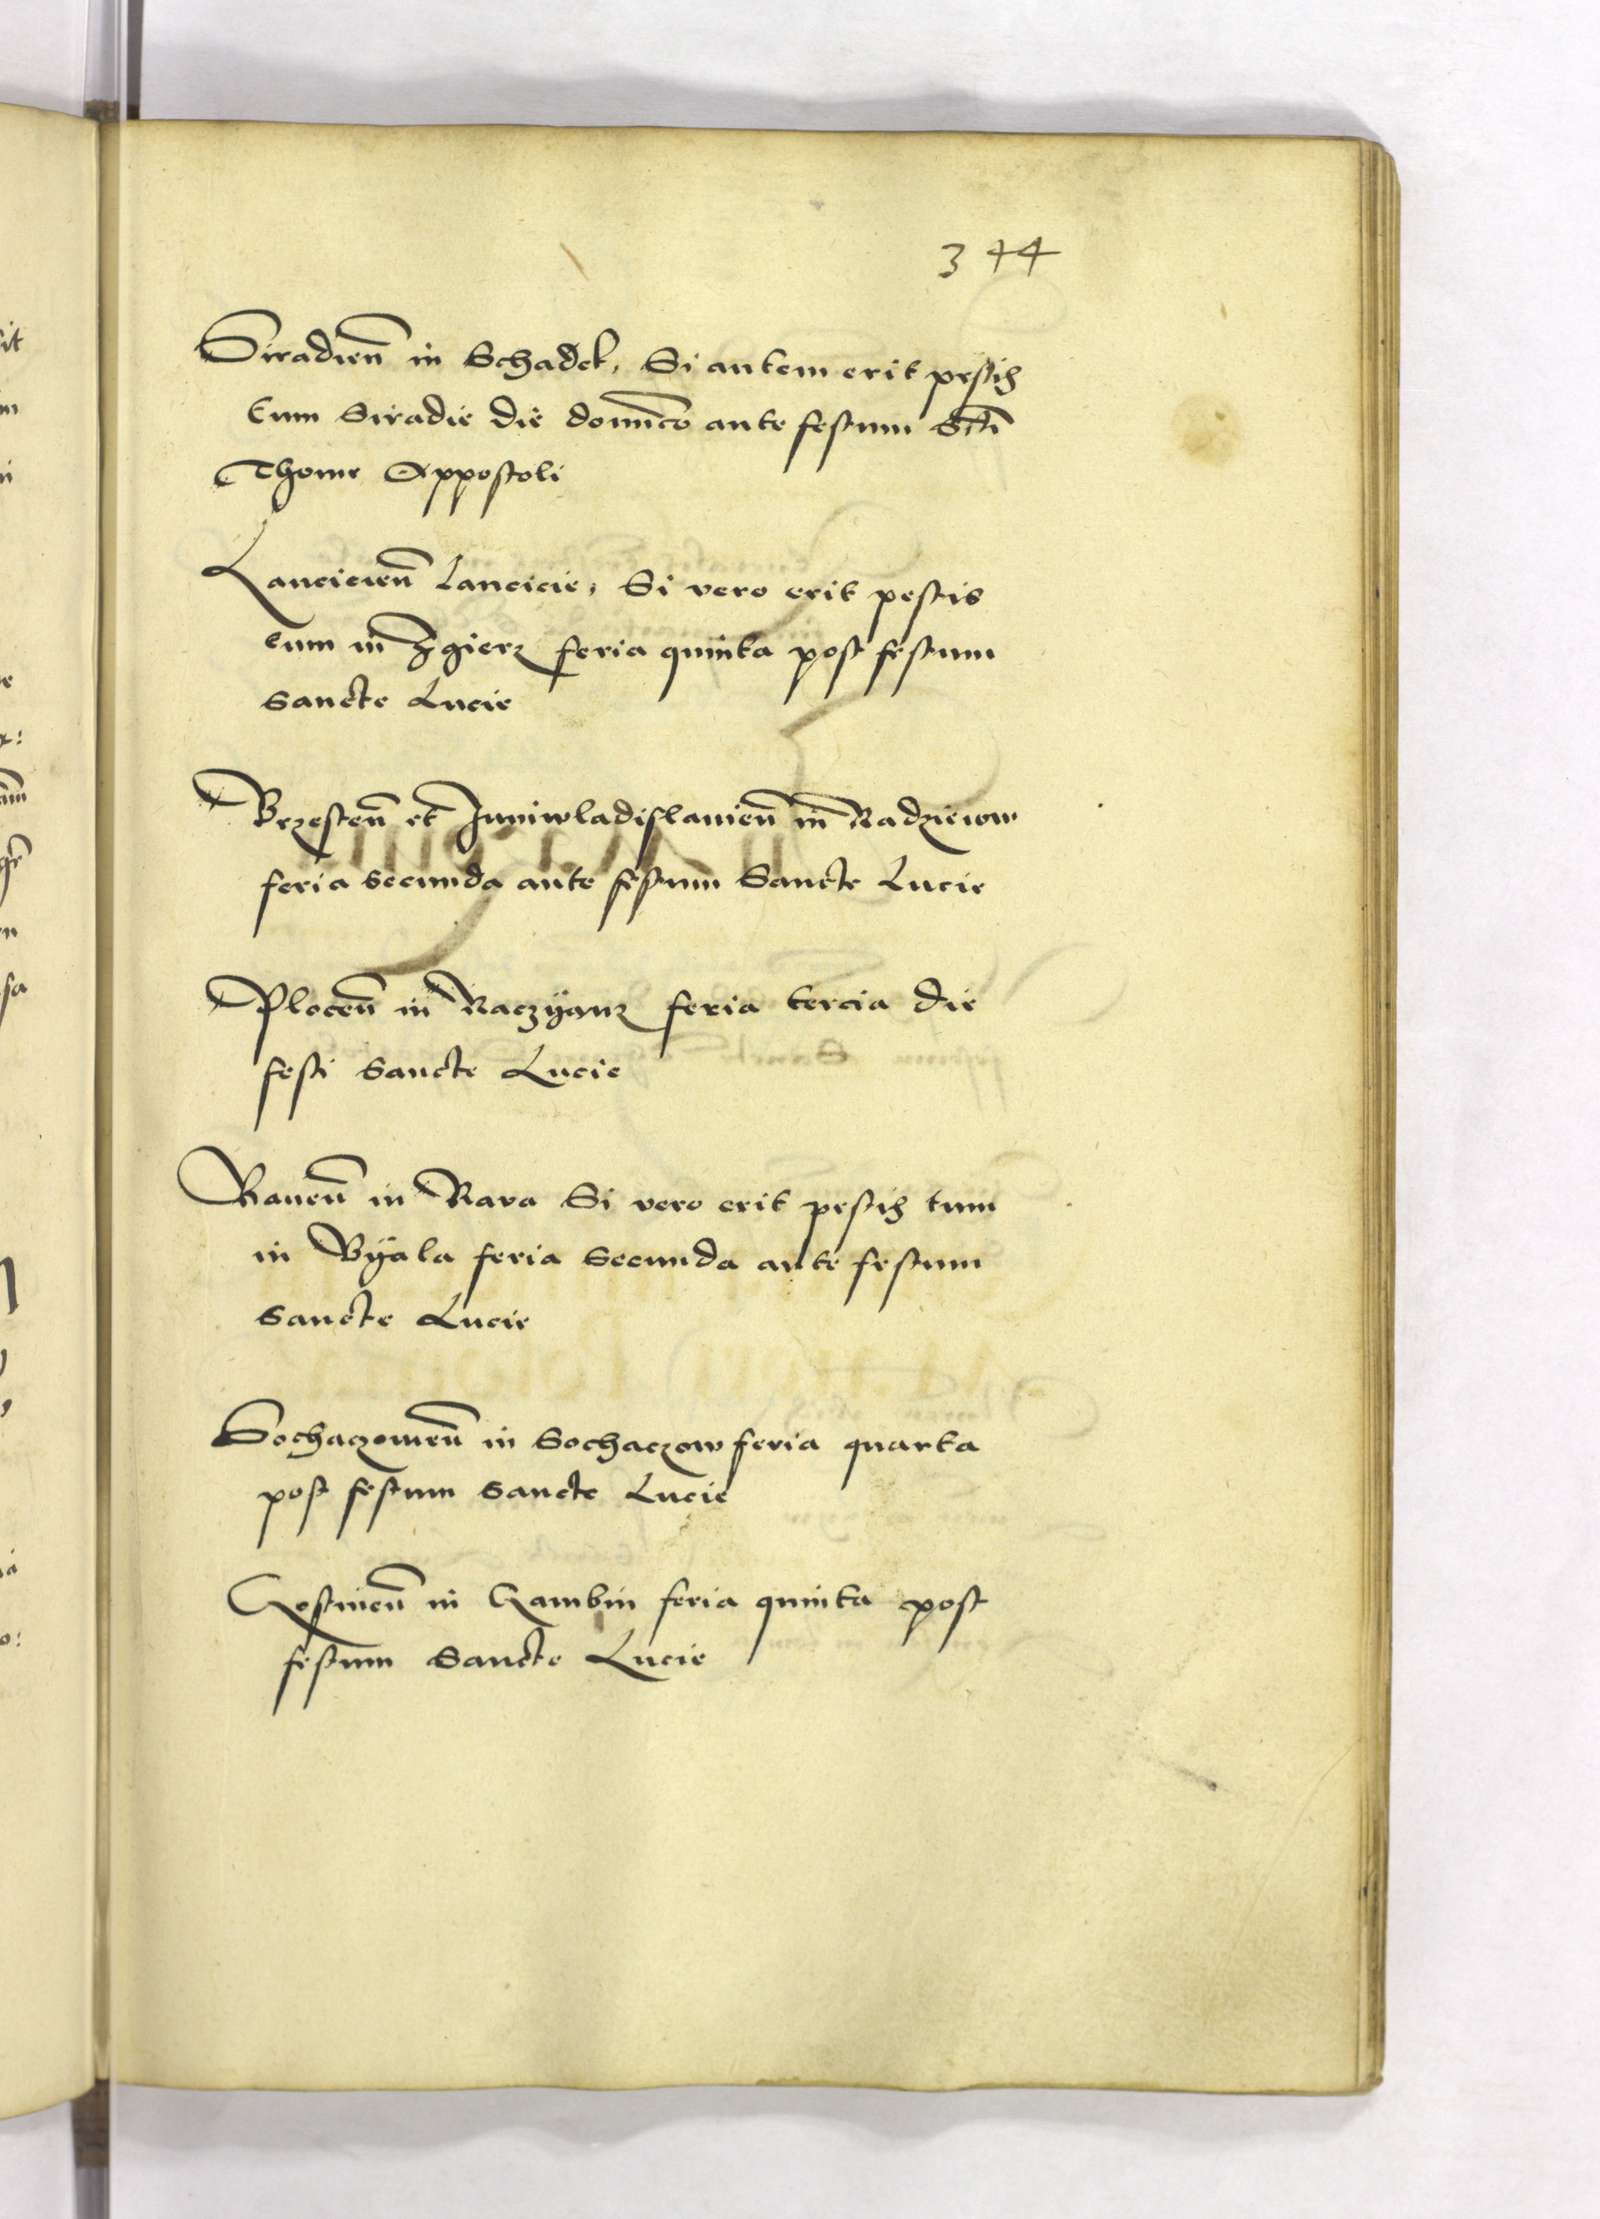 344
Siradien̄ in Schadek, Si autem erit pestis
tum Siradie die dominico ante festum Scti
Thome Appostoli
Lancicien̄ Lancicie, Si vero erit pestis
tum in Zgierz feria quinta post festum
sancte Lucie
Brzesten̄ et Juniwladislauien̄ in Radzieiow
feria secunda ante festum Sancte Lucie
Plocen̄ in Raczÿanz feria tercia die
festi Sancte Lucie
Rauen̄ in Rava Si vero erit pestis tum
in Byala feria secunda ante festum
sancte Lucie
Sochaczouien̄ in Sochaczow feria quarta
post festum sancte Lucie
Gostinen̄ in Gambin feria quinta post
festum Sancte Lucie